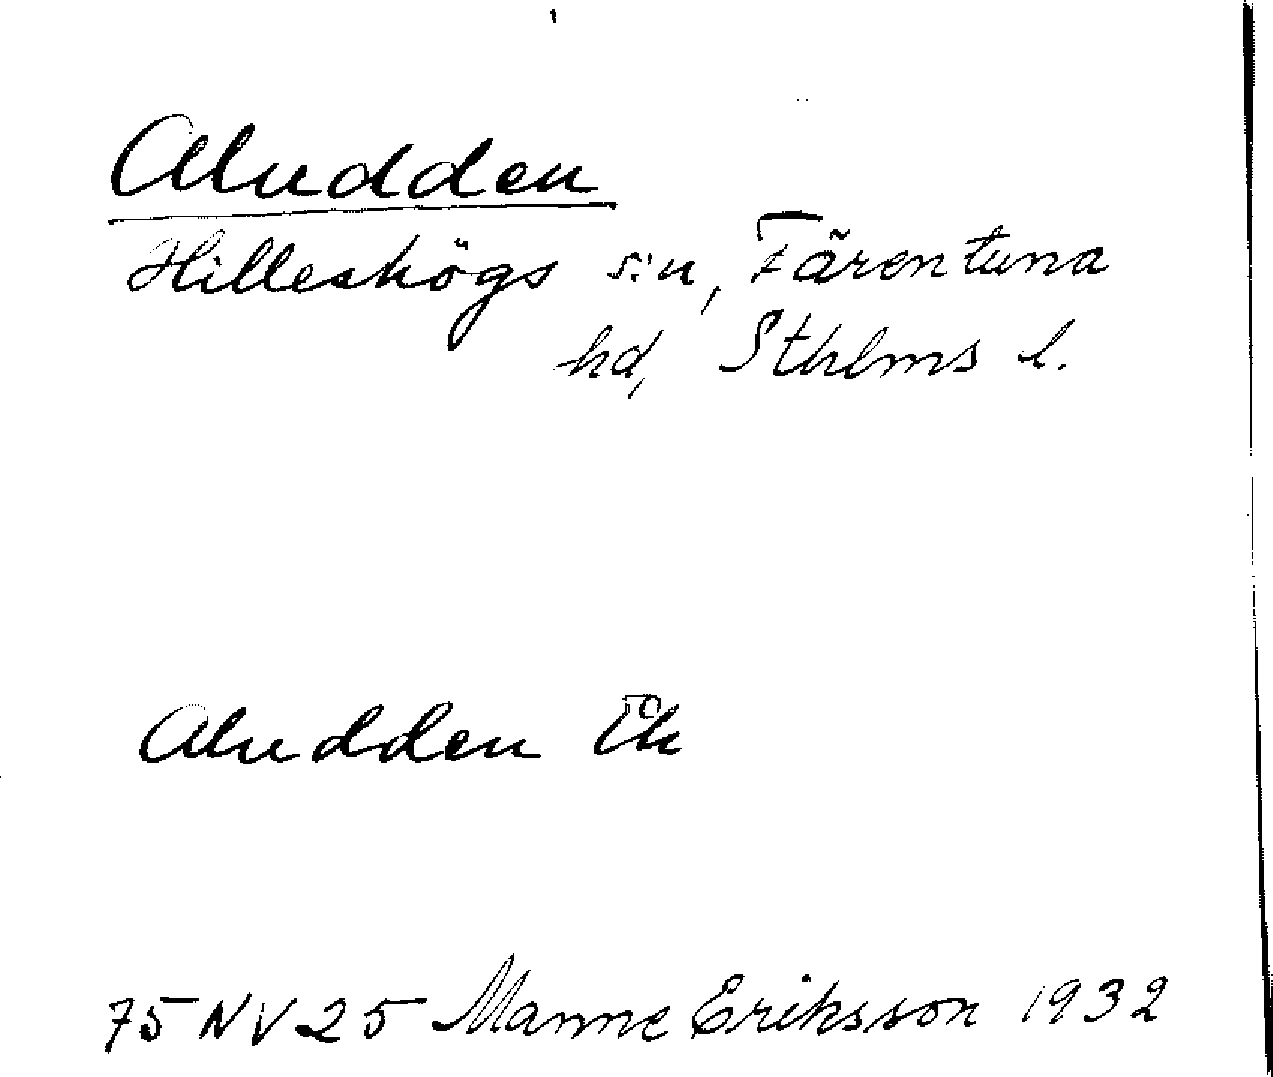 Aludden
Hilleshögs s:n, Färentuna
hd, Sthlms l.
Aludden
75 NV 25 Manne Eriksson 1932